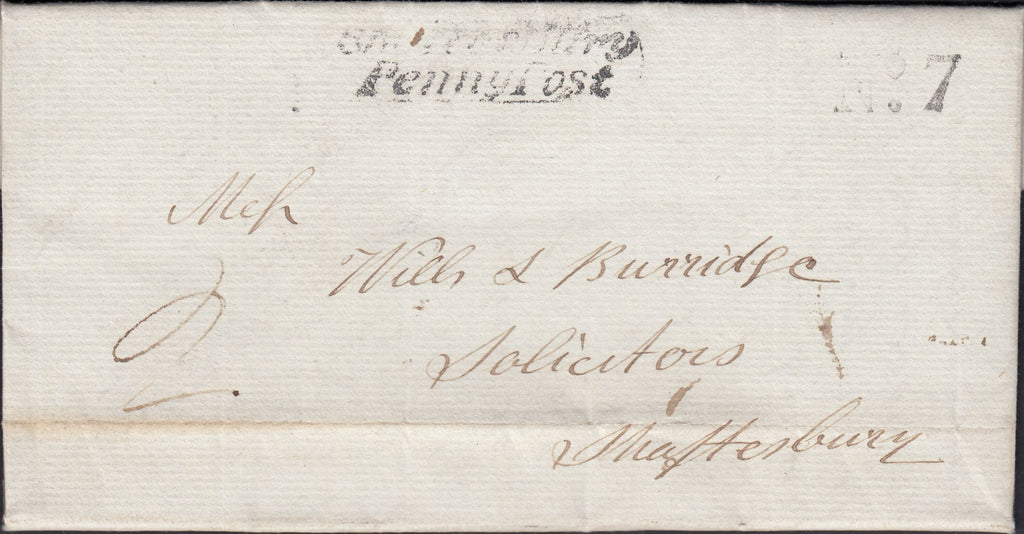 Penny Post
No. 7
Mess
Wills & Burridge
Solicitors
Shaftesbury